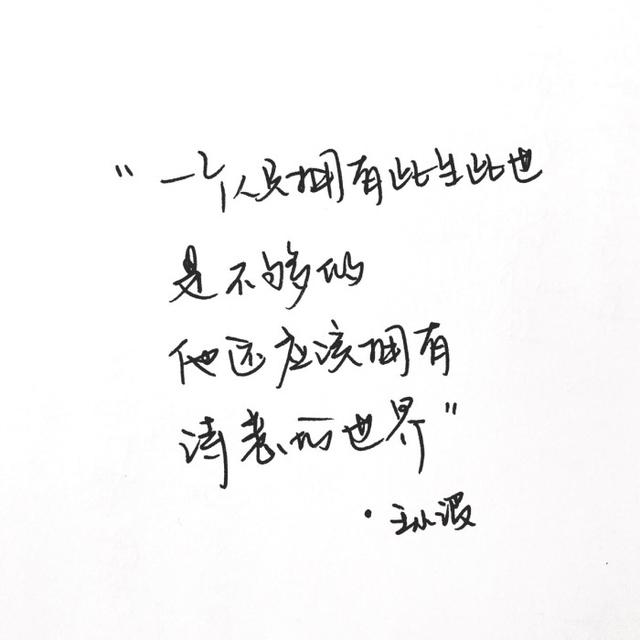 "一个人只拥有此生此世
是不够的
他还应该拥有
诗意的世界"
·王小波